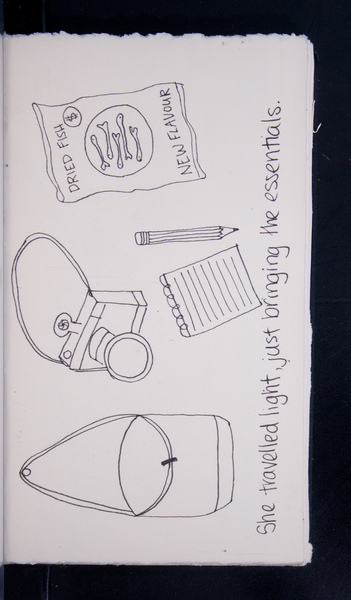 DRIED FISH
$
NEW FLAVOUR
She travelled light, just bringing the essentials.